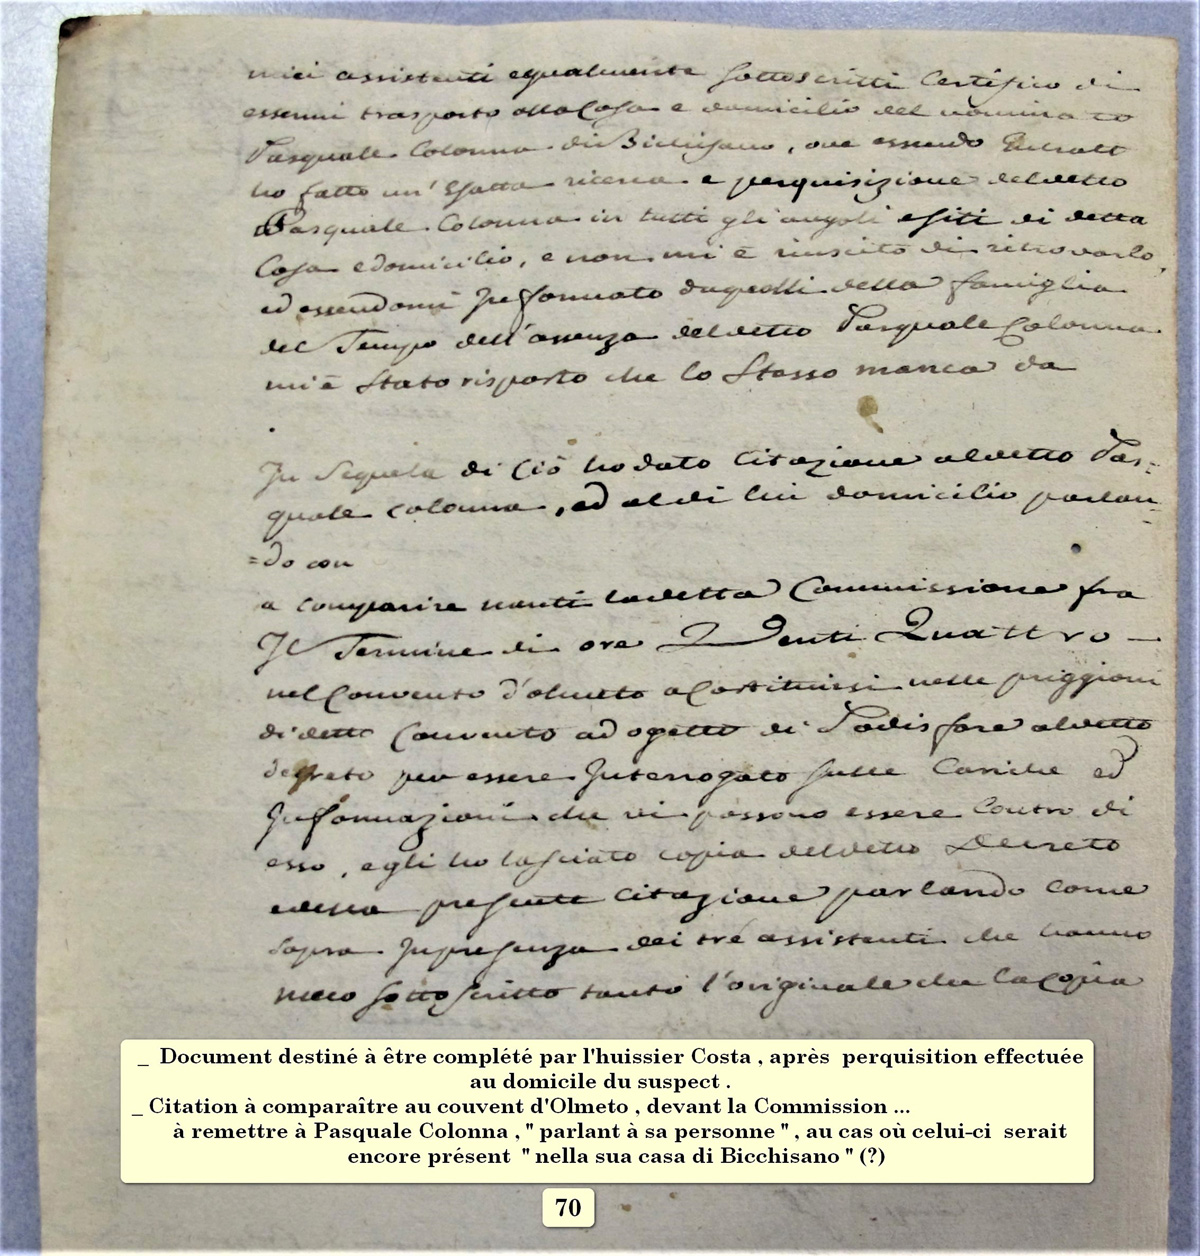 miei assistenti egualmente sottoscritti Certifico di
essermi trasporto alla Casa e domicilio del nominato
Pasquale Colonna di Bichisano, ove essendo
ho fatto un' Esatta ricerca e perquisizione del detto
Pasquale Colonna in tutti gli angoli e siti di detta
Casa e domicilio, e non mi è riuscito di ritrovarlo,
ed essendomi Informato da quelli della famiglia
del Tempo dell'assenza del detto Pasquale Colonna
mi è Stato risposto che lo Stesso manca da
In Sequela di Ciò ho dato Citazione al detto Pas-
quale Colonna, ed al di lui domicilio parlan-
=do con
a comparire nanti la detta Commissione fra
Il Termine di ore Venti Quattro
nel Convento d'olmeto a Costituirsi nelle priggioni
di detto Convento ad ogetto di Sodisfare al detto
decreto per essere Interrogato sulle Cariche ed
Informazioni che vi possono essere Contro di
esso, e gli ho lasciato copia del detto Decreto
e della presente Citazione parlando come
sopra In presenza dei tré assistenti che hanno
meco sottoscritto tanto l'originale che la Copia
_ Document destiné à être complété par l'huissier Costa , après perquisition effectuée
au domicile du suspect .
_ Citation à comparaître au couvent d'Olmeto , devant la Commission ...
à remettre à Pasquale Colonna , " parlant à sa personne " , au cas où celui-ci serait
encore présent " nella sua casa di Bicchisano " (?)
70